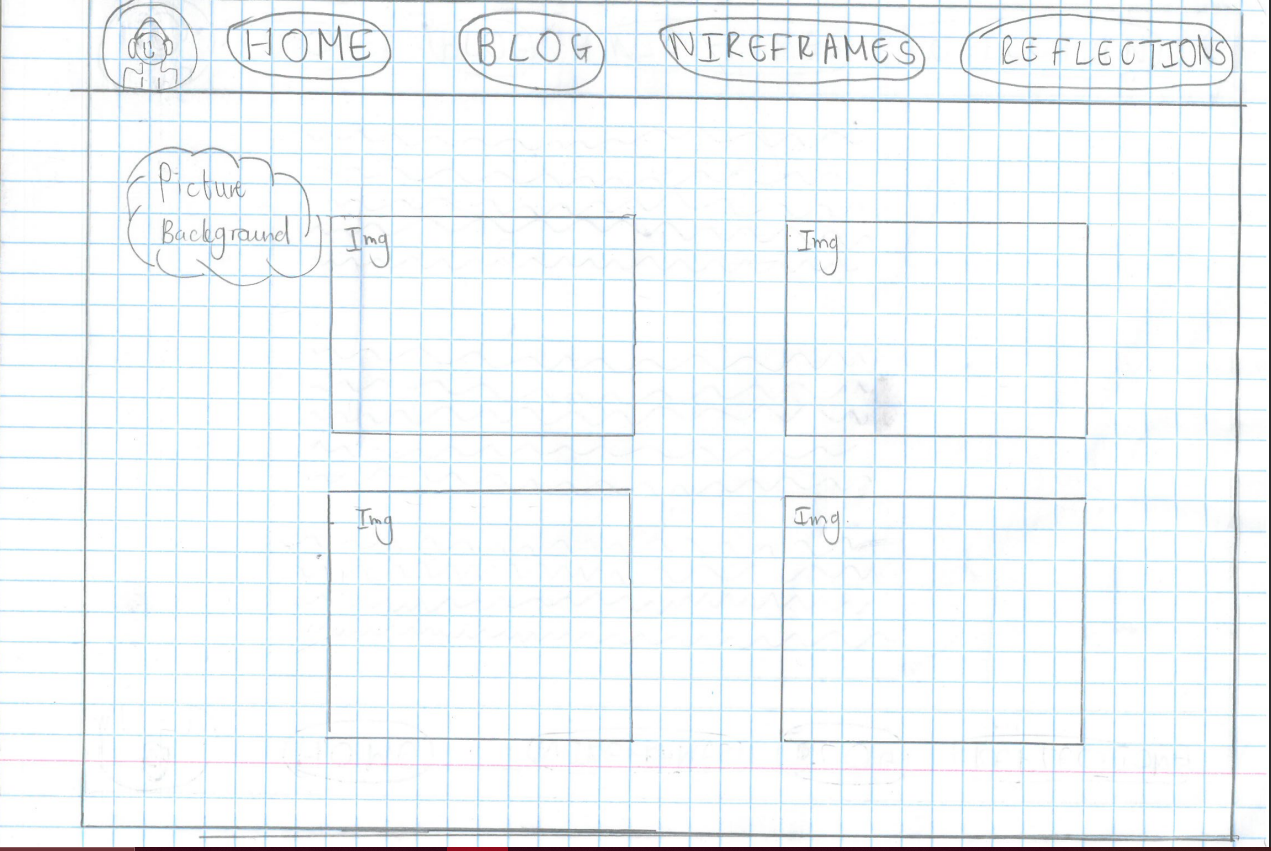 HOME
BLOG
WIREFRAMES
REFLECTIONS
Picture
Background
Img
Img
Img
Img.